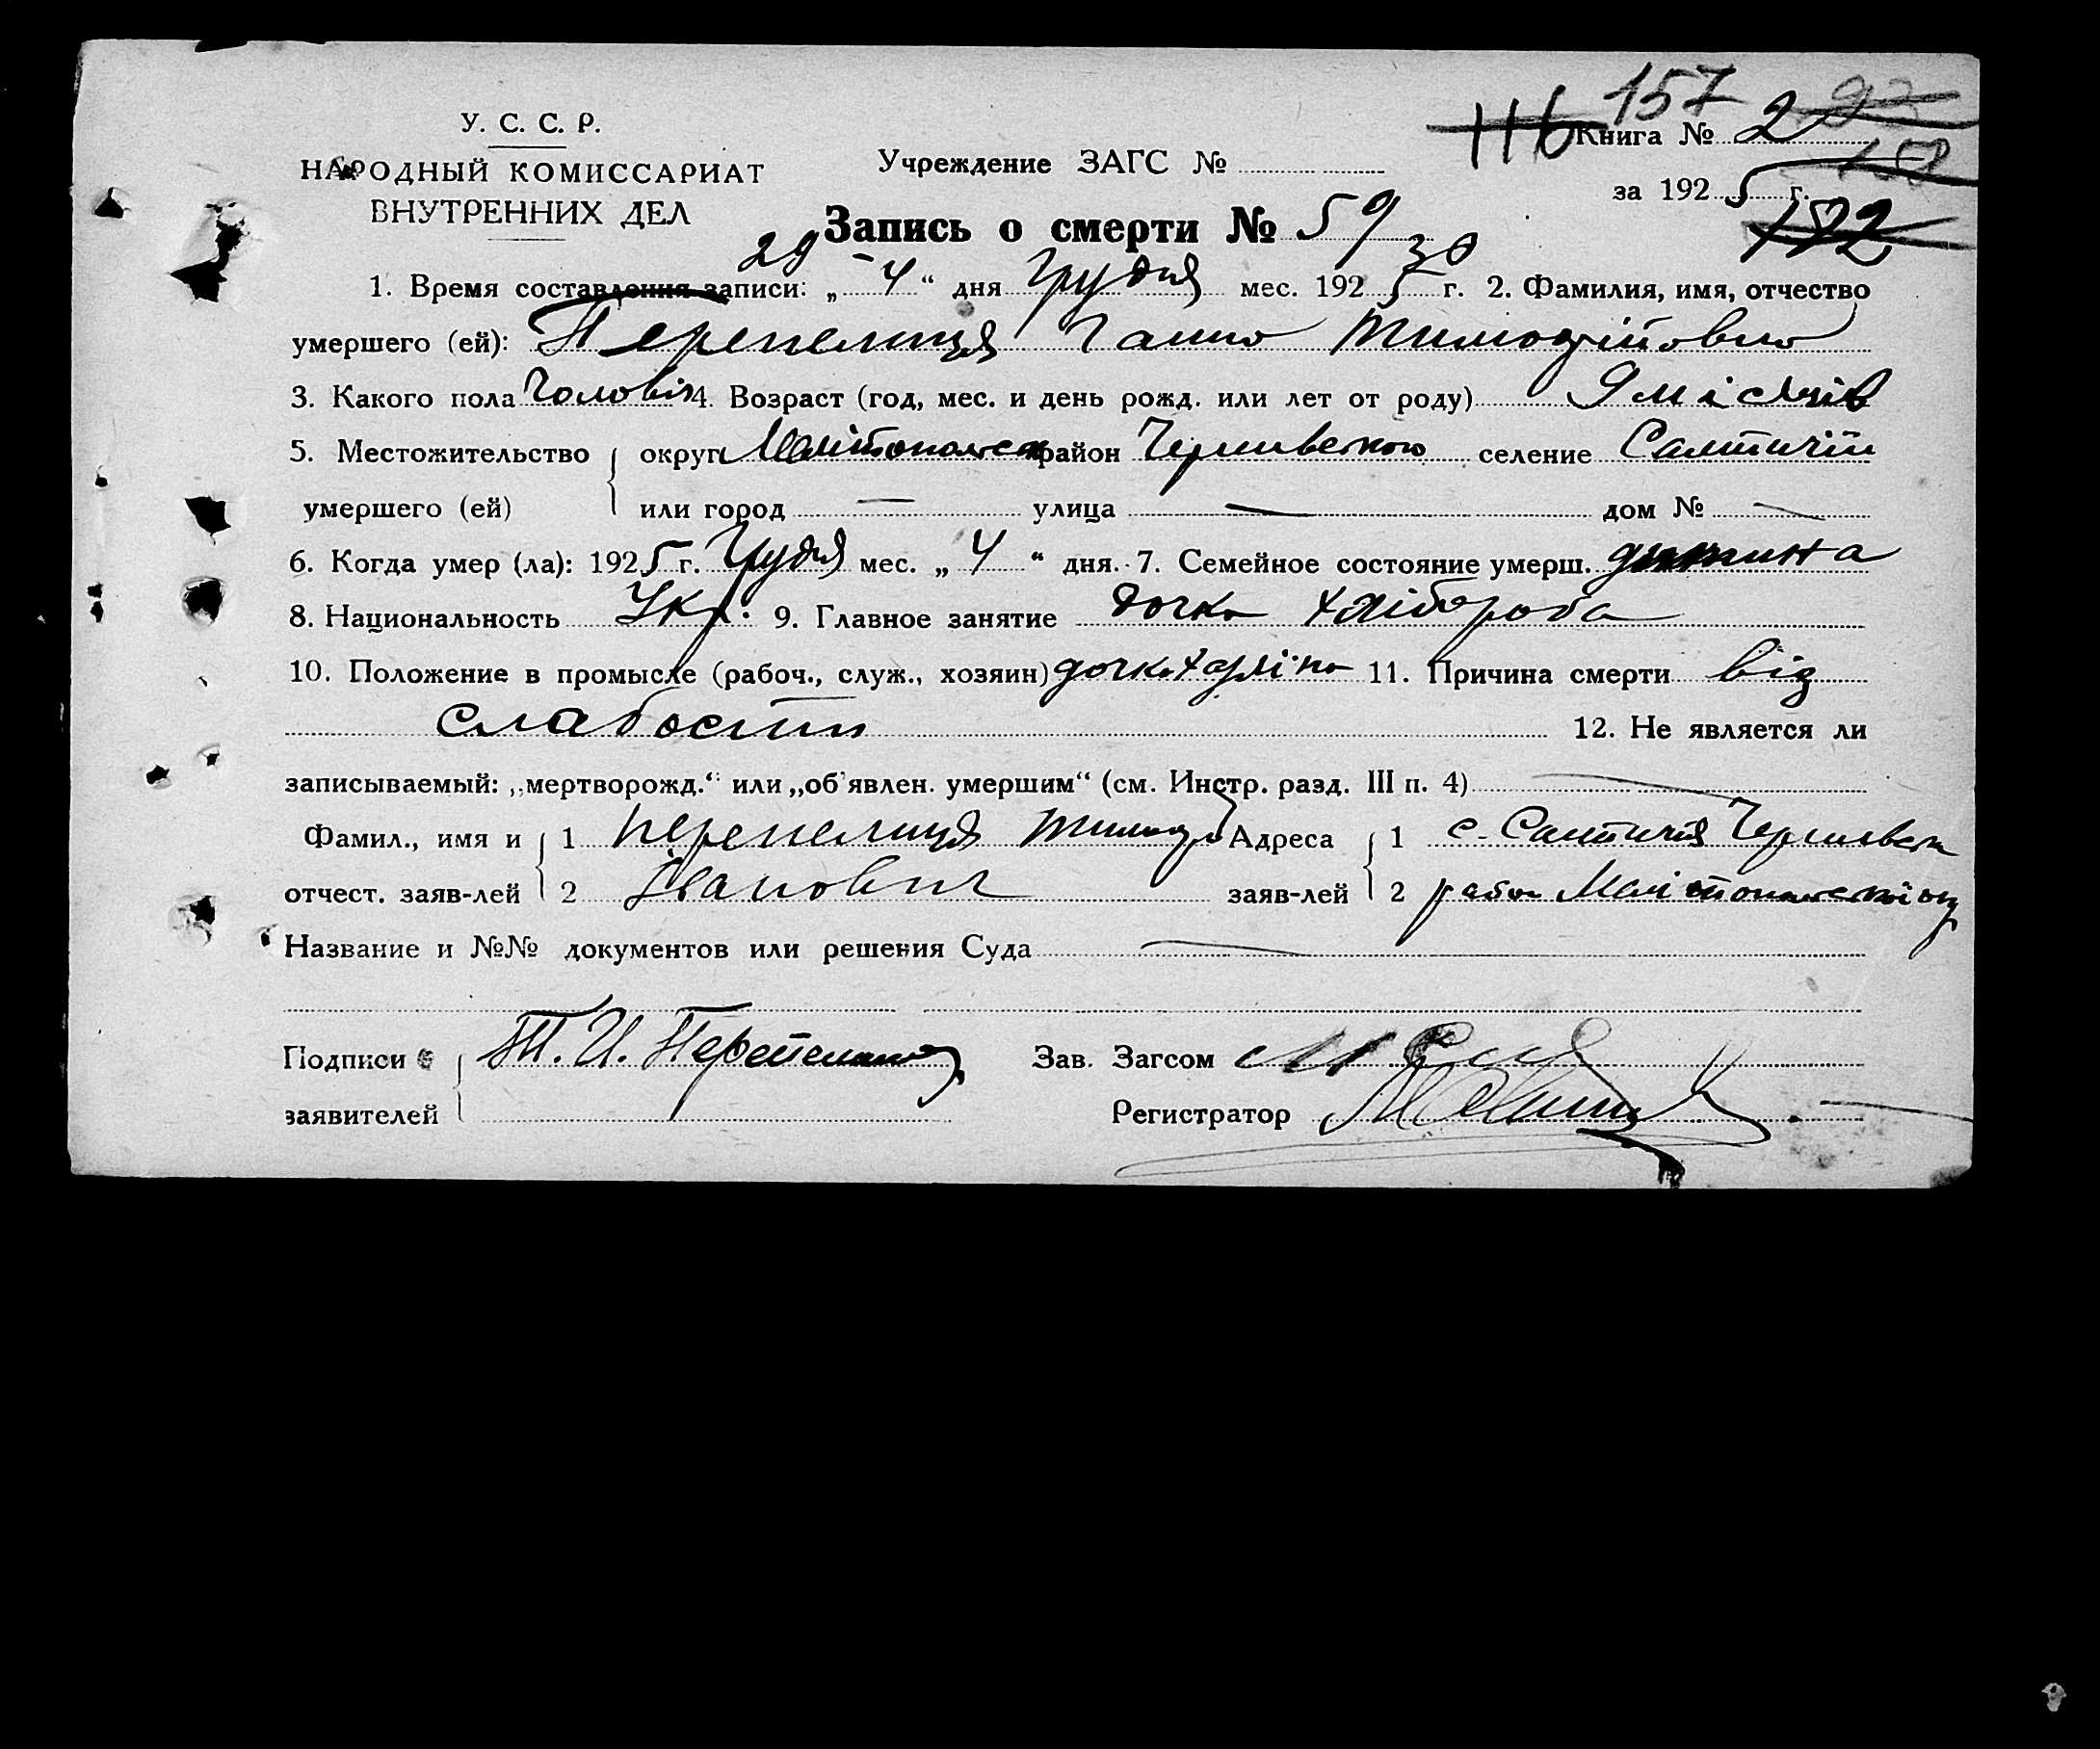 157
116 Книга № 2 92
У. С. С. Р.
НАРОДНЫЙ КОМИССАРИАТ
ВНУТРЕННИХ ДЕЛ
Учреждение ЗАГС №
за 1925 г.
122
Запись о смерти № 59
29 30
1. Время составления записи: „ 4 “ дня Грудня мес. 1925 г. 2. Фамилия, имя, отчество
умершего (ей): Перепелиця Ганна Тимофійовна
3. Какого пола Чоловіч 4. Возраст (год, мес. и день рожд. или лет от роду) 9 місяців
5. Местожительство округ Мелітопольск район Чернивского селение Салтичій
умершего (ей) или город — улица — дом № —
6. Когда умер (ла): 1925 г. Грудня мес. „ 4 “ дня. 7. Семейное состояние умерш. дитина
8. Национальность Укр. 9. Главное занятие дочка хлібороба
10. Положение в промысле (рабоч., служ., хозяин) дочка 11. Причина смерти від
слабости 12. Не является ли
записываемый: „мертворожд.“ или „об'явлен. умершим“ (см. Инстр. разд. III п. 4) —
Фамил., имя и 1 Перепелиця Тимоф Адреса 1 с. Салтичія Чернивск
отчест. заяв-лей 2 Іванович заяв-лей 2 район Мелітопольской окр
Название и №№ документов или решения Суда —
Подписи Т. И. Перепелица Зав. Загсом
заявителей Регистратор